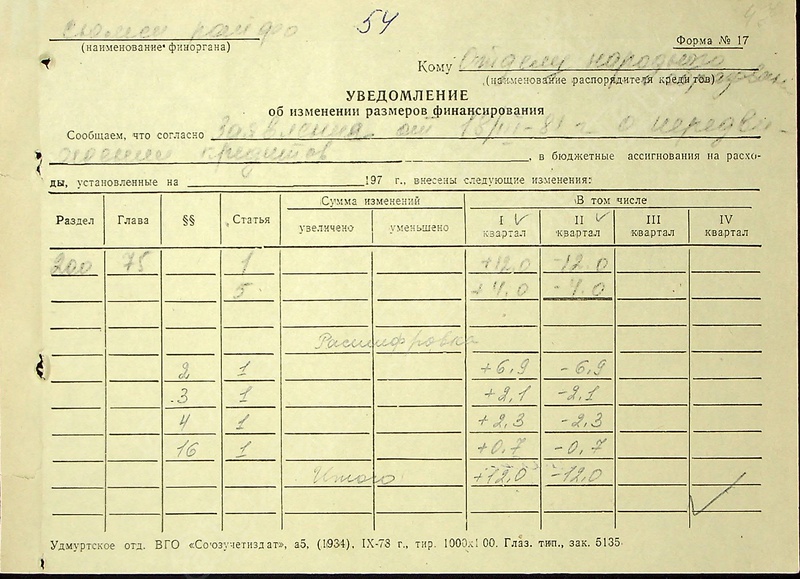 Сюмси райфо 54
(наименование финоргана) Форма № 17
Кому Отделу народного образования
(наименование распорядителя кредитов)
УВЕДОМЛЕНИЕ
об изменении размеров финансирования
Сообщаем, что согласно Заявления от 18/III-81 г. о передви-
жении кредитов, в бюджетные ассигнования на расхо-
ды, установленные на 197 г., внесены следующие изменения:
Раздел Глава §§ Статья Сумма изменений В том числе
увеличено уменьшено I квартал II квартал III квартал IV квартал
200 75 1 +12,0 -12.0
5 +4,0 -4.0
Расшифровка
2 1 +6,9 -6,9
3 1 +2,1 -2,1
4 1 +2,3 -2,3
16 1 +0,7 -0,7
Итого +12,0 -12,0
Удмуртское отд. ВГО «Союзучетиздат», а5, (1934), IX-78 г., тир. 1000х100. Глаз. тип., зак. 5135